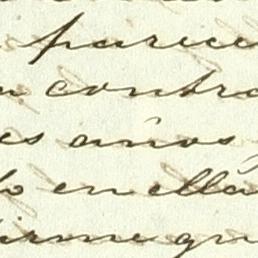 parece
contra
es años
lo en ella
firme qu